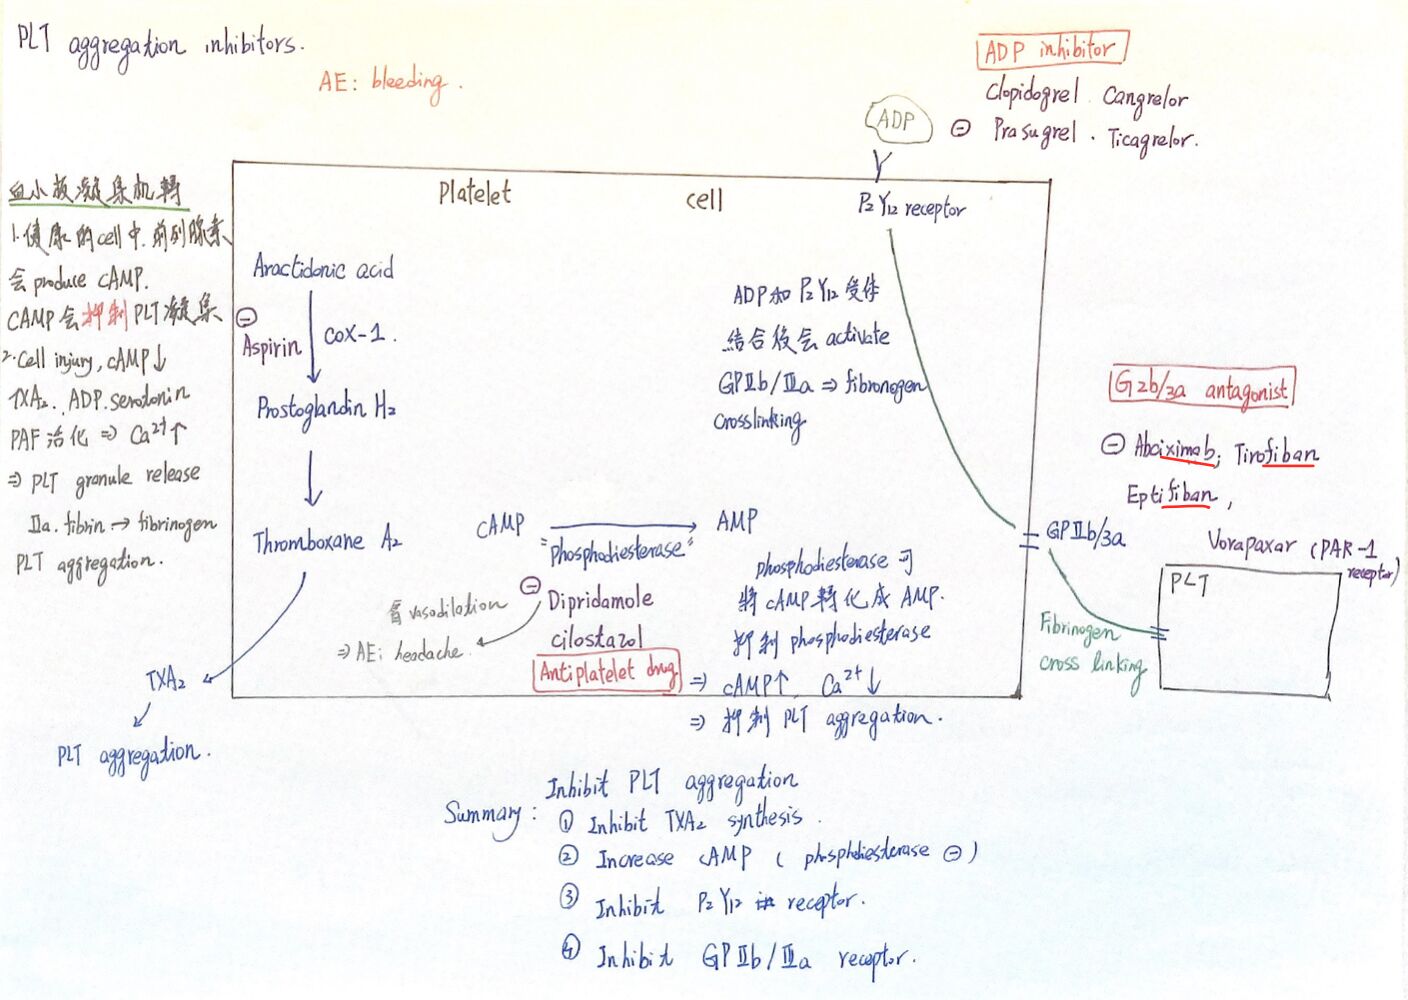 PLT aggregation inhibitors.
AE: bleeding.
ADP inhibitor
Clopidogrel Cangrelor
⊖ Prasugrel. Ticagrelor.
ADP
Platelet cell
P2Y12 receptor
血小板凝集机轉
1.健康的cell中.前列腺素
会produce cAMP.
CAMP会抑制PLT凝集
2.Cell injury, cAMP↓
TXA2. ADP.serotonin
PAF活化⇒Ca2+↑
⇒ PLT granule release
IIa.fibrin→fibrinogen
PLT aggregation.
Aractidonic acid
⊖
Aspirin
COX-1.
Prostoglandin H2
Thromboxane A2
TXA2
PLT aggregation.
ADP和P2Y12受体
结合後会activate
GPIIb/IIIa⇒fibronogen
crosslinking
cAMP
"phosphodiesterase"
AMP
⊖ Dipridamole
cilostazol
Antiplatelet drug
vasodilation
⇒AE: headache.
phosphodiesterase可
將cAMP轉化成AMP.
抑制phosphodiesterase
⇒ cAMP↑ Ca2+↓
⇒ 抑制PLT aggregation.
G2b/3a antagonist
⊖ Abciximab, Tirofiban
Eptifiban,
Vorapaxar (PAR-1
receptor)
GPIIb/3a
PLT
Fibrinogen
cross linking
Inhibit PLT aggregation
Summary:
① Inhibit TXA2 synthesis.
② Increase cAMP (phosphodiesterase ⊖)
③ Inhibit P2Y12 receptor.
④ Inhibit GPIIb/IIIa receptor.